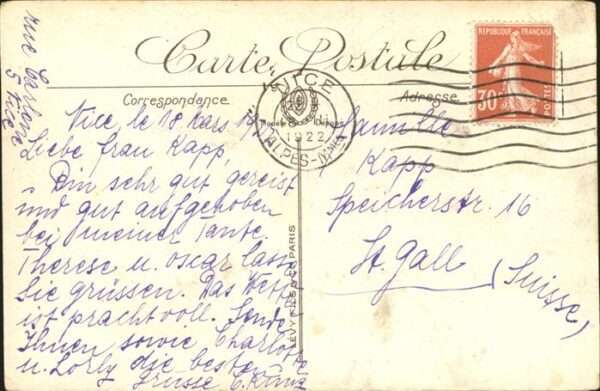 rue
Nice
Carte Postale
RÉPUBLIQUE FRANÇAISE
30c
POSTES
Correspondance
Adresse
NICE
1922
ALPES-
Nice le 18 Mars 19
Liebe Frau Kapp,
Bin sehr gut gereist
und gut aufgehoben
bei meiner Tante.
Therese u. Oscar lass
Sie grüssen. Das Wett
ist prachtvoll. Sende
Ihnen sowie Charlotte
u. Lorly die besten
Grüsse C.
LÉVY FILS & Cie PARIS
Familie
Kapp
Speicherstr. 16
St. Gall
(Suisse)